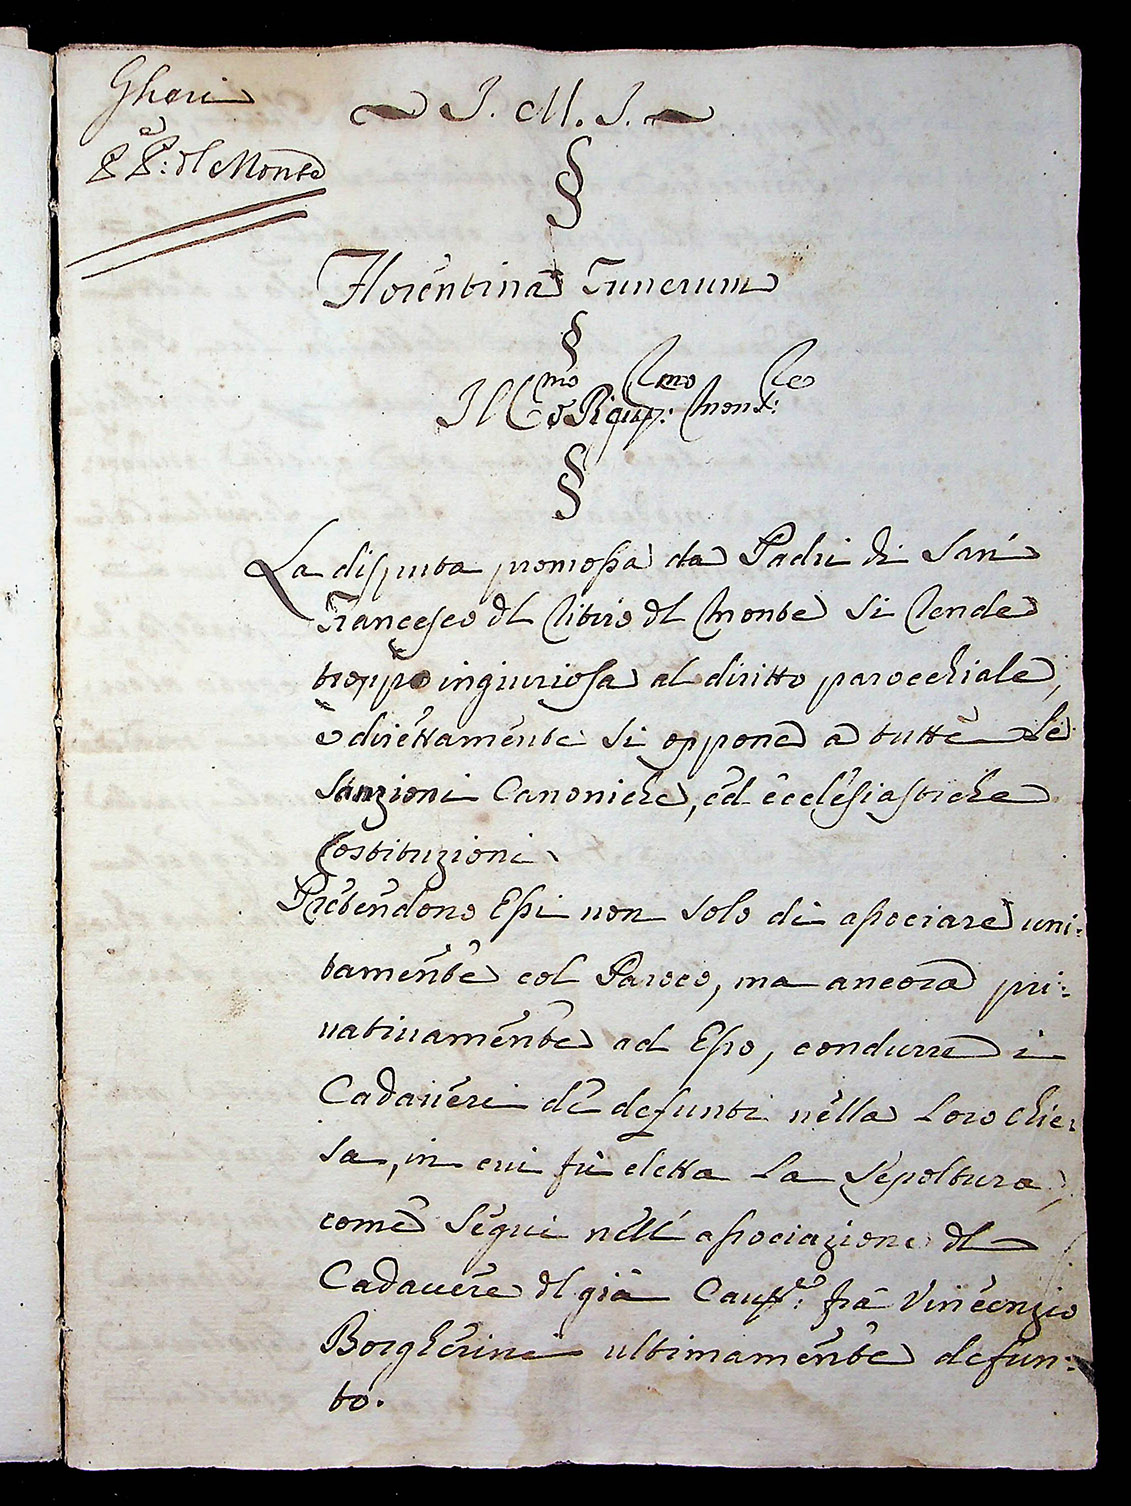 Gheri
PP: dl Monte
J. M. J.
Florentina Funerum
Ill.mo e Rmo
La disputa promossa da Padri di San
Francesco dl Ritiro dl Monte si rende
troppo ingiuriosa al diritto parocchiale,
e direttamente si oppone a tutte le
Sanzioni Canoniche, ed ecclesiastiche
Costituzioni.
Pretendono Essi non solo di associare uni:
tamente col Paroco, ma ancora pri:
vativamente ad Esso, condurre i
Cadaveri de defunti nella loro chie:
sa, in cui fù eletta la Sepoltura,
come seguì nell' associazione dl
Cadavere dl già Cav:re frà Vincenzio
Borgherini ultimamente defun:
to.